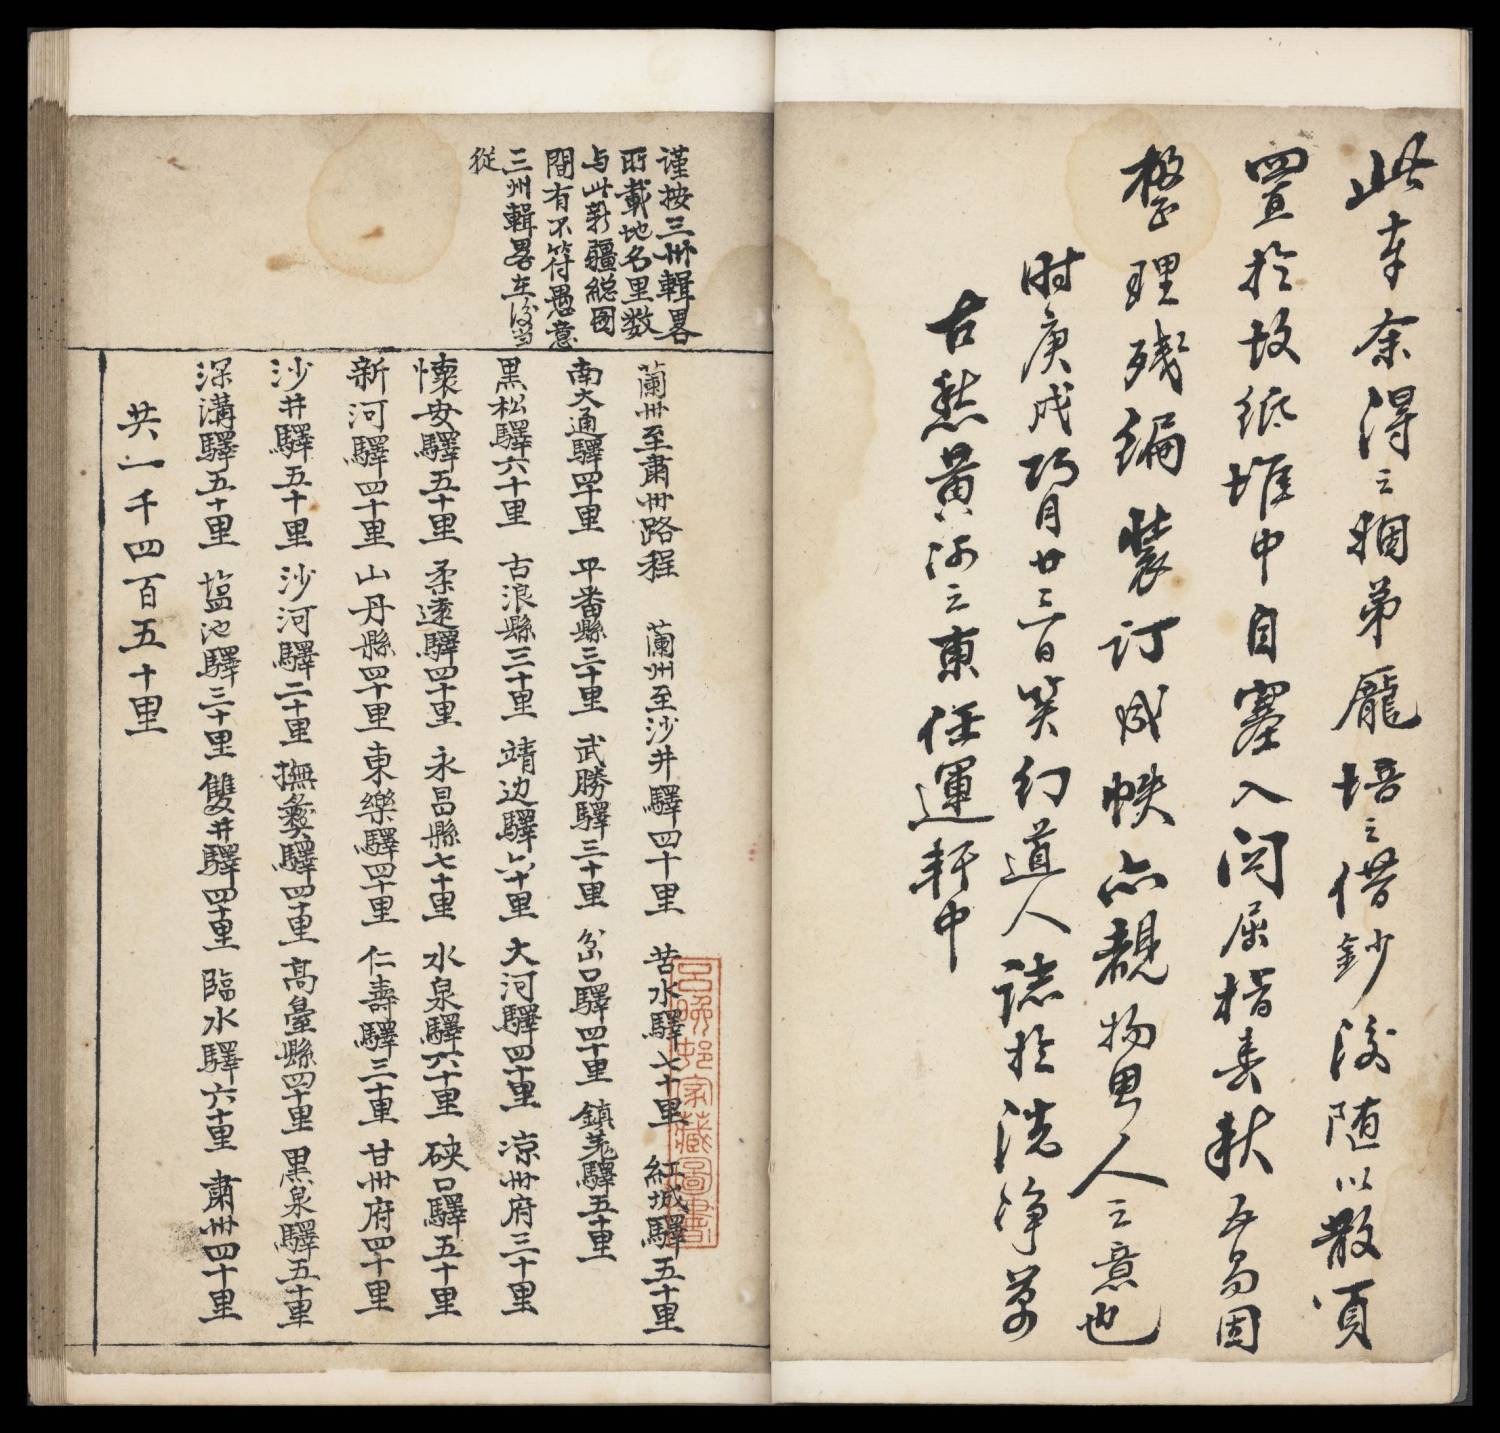 此本余得之胭弟龐培之借鈔後随以散頁
置於故紙堆中自塞入関屈指春秋五易因
整理残編裝訂成帙亦覩物思人之意也
时庚戌巧月廿三日笑幻道人誌於洗淨草
古愁黃河之東任運軒中
謹按三州輯畧
所載地名里数
与此新疆総圖
間有不符愚意
三州輯畧在後当
從
蘭州至肅州路程 蘭州至沙井驛四十里 苦水驛七十里 紅城驛五十里
南大通驛四十里 平番縣三十里 武勝驛三十里 岔口驛四十里 鎮羌驛五十里
黒松驛六十里 古浪縣三十里 靖边驛六十里 大河驛四十里 凉州府三十里
懷安驛五十里 柔遠驛四十里 永昌縣七十里 水泉驛六十里 硖口驛五十里
新河驛四十里 山丹縣四十里 東樂驛四十里 仁壽驛三十里 甘州府四十里
沙井驛五十里 沙河驛二十里 撫彜驛四十里 高臺縣四十里 黒泉驛五十里
深溝驛五十里 塩池驛三十里 雙井驛四十里 臨水驛六十里 肅州四十里
共一千四百五十里
呂晚邨家藏圖書